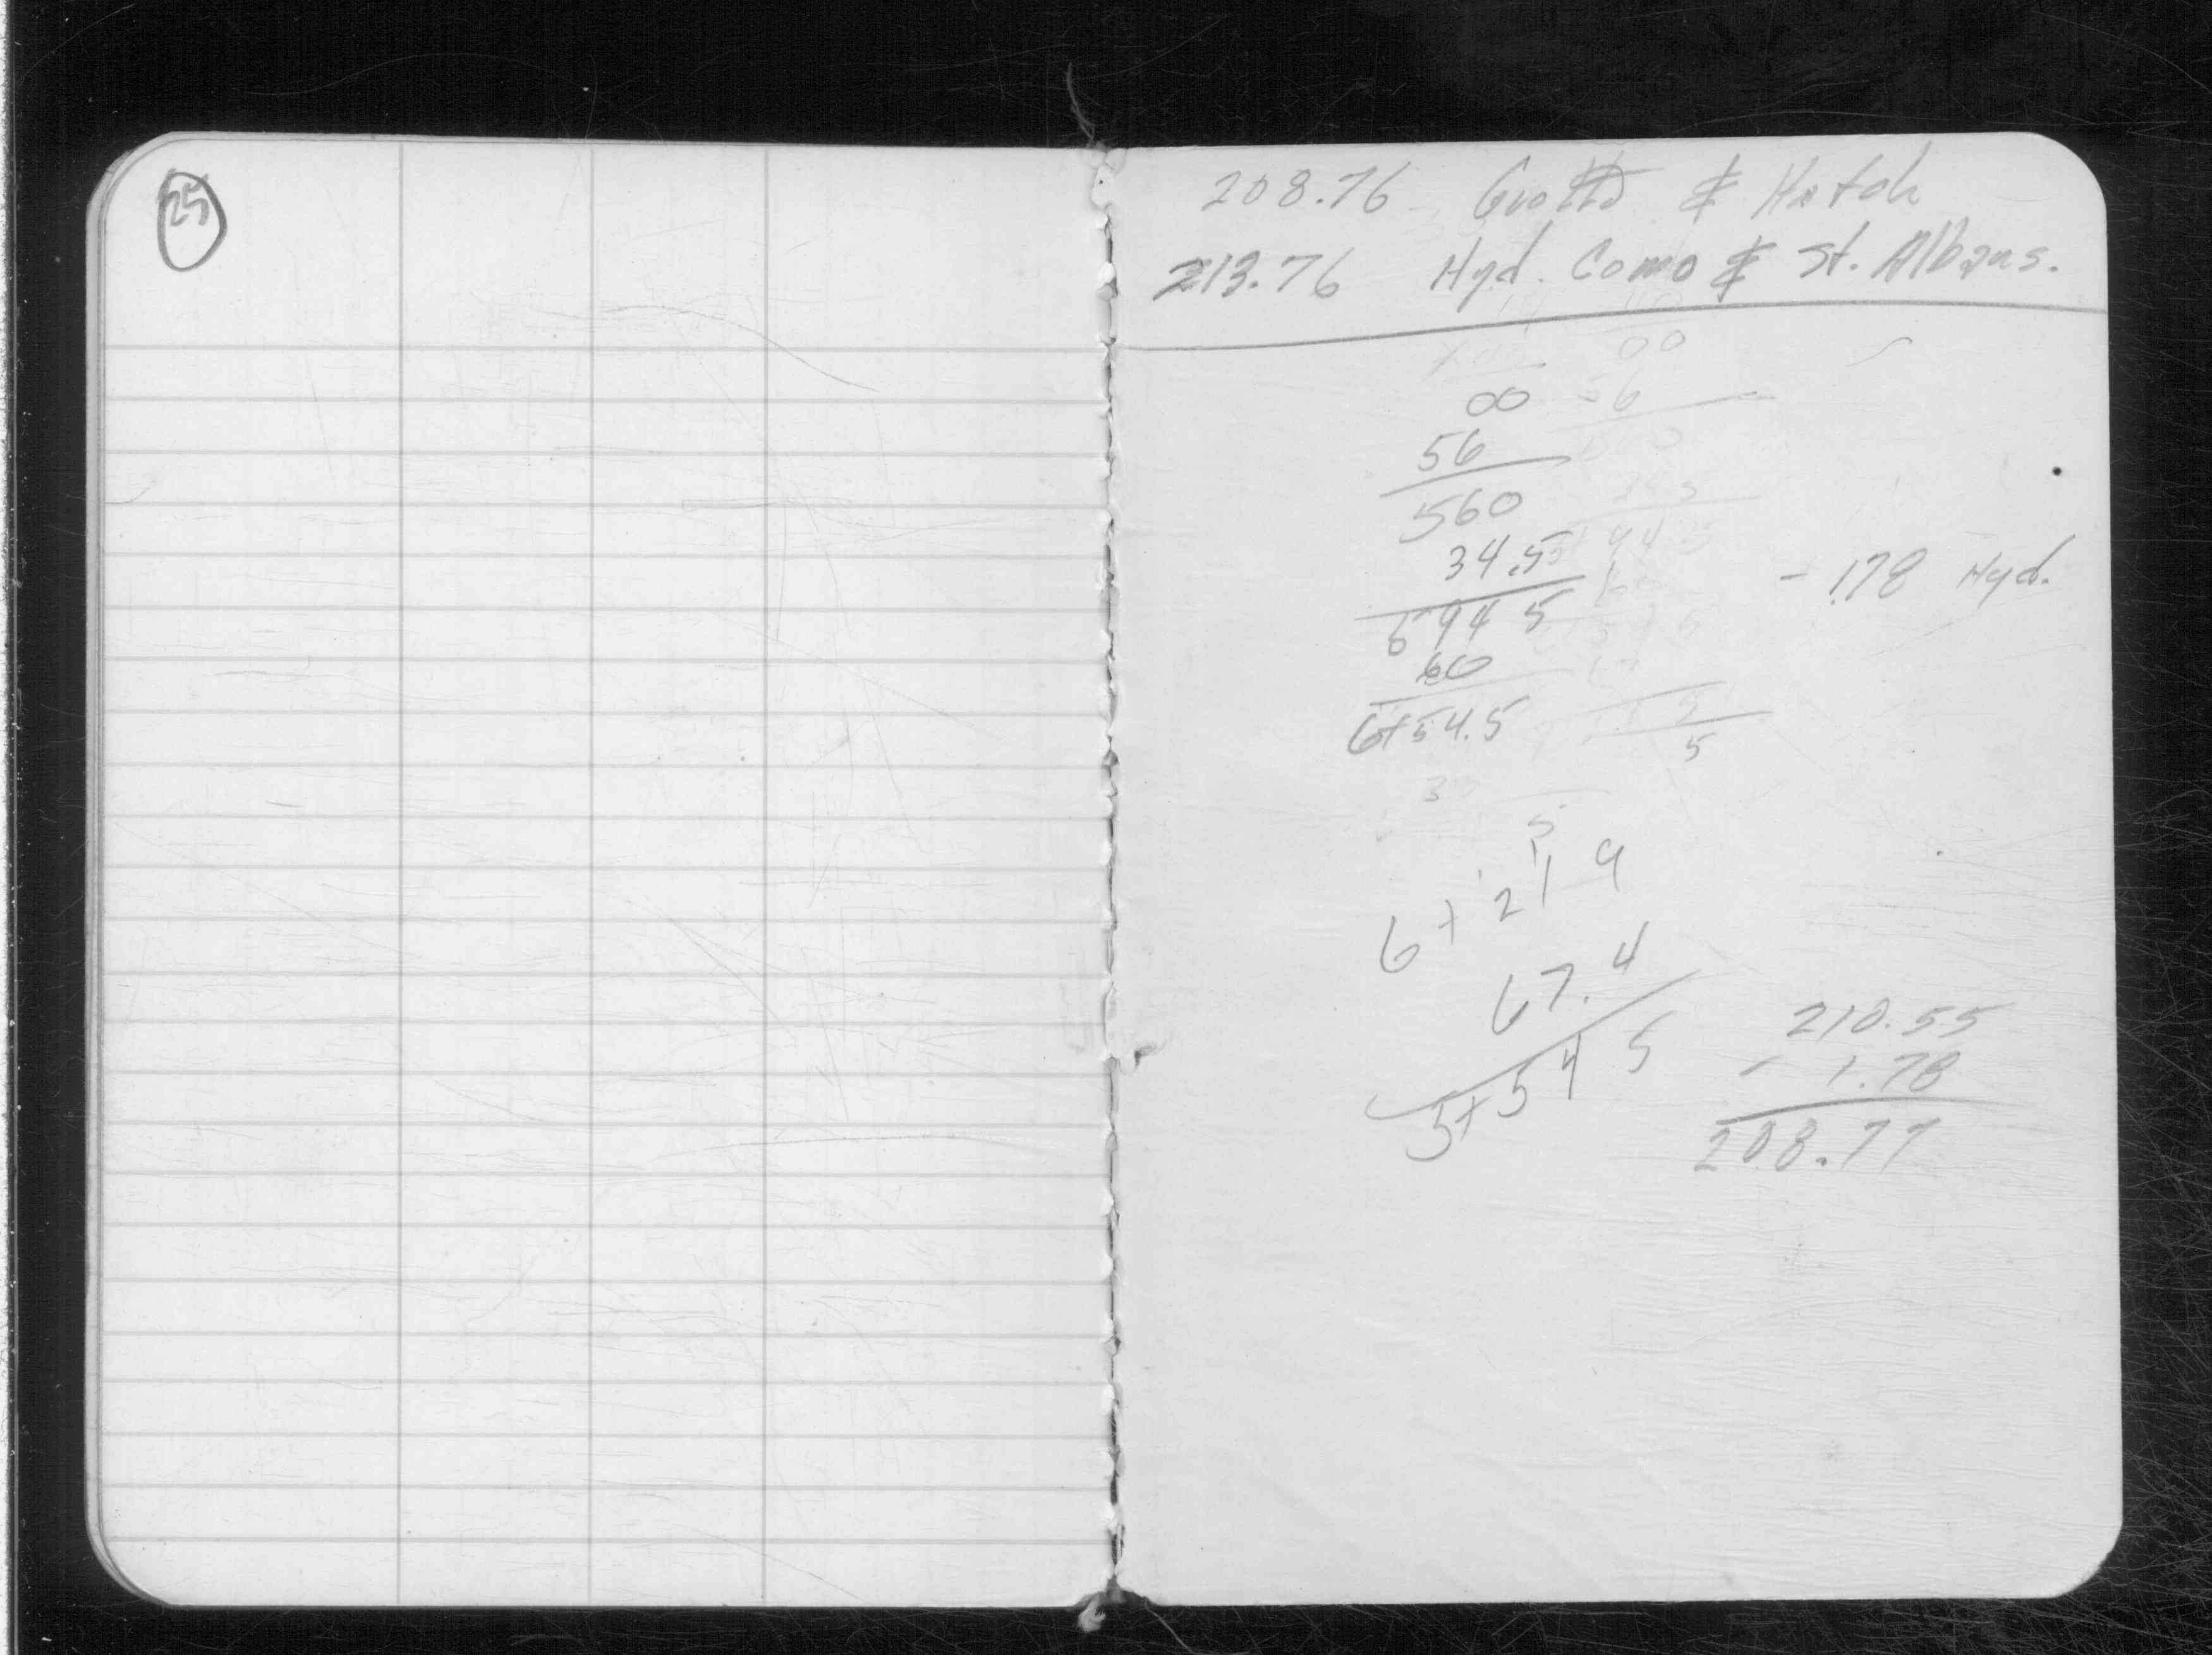 25
208.76 Grotto & Hatch
213.76 Hyd. Como & St. Albans.
00
00
56
6
560
34.5
694 5
- 1.78 Hyd.
60
6+54.5
5
3
5
6+ 21 9
67.4
5+54 5
210.55
- 1.78
208.77